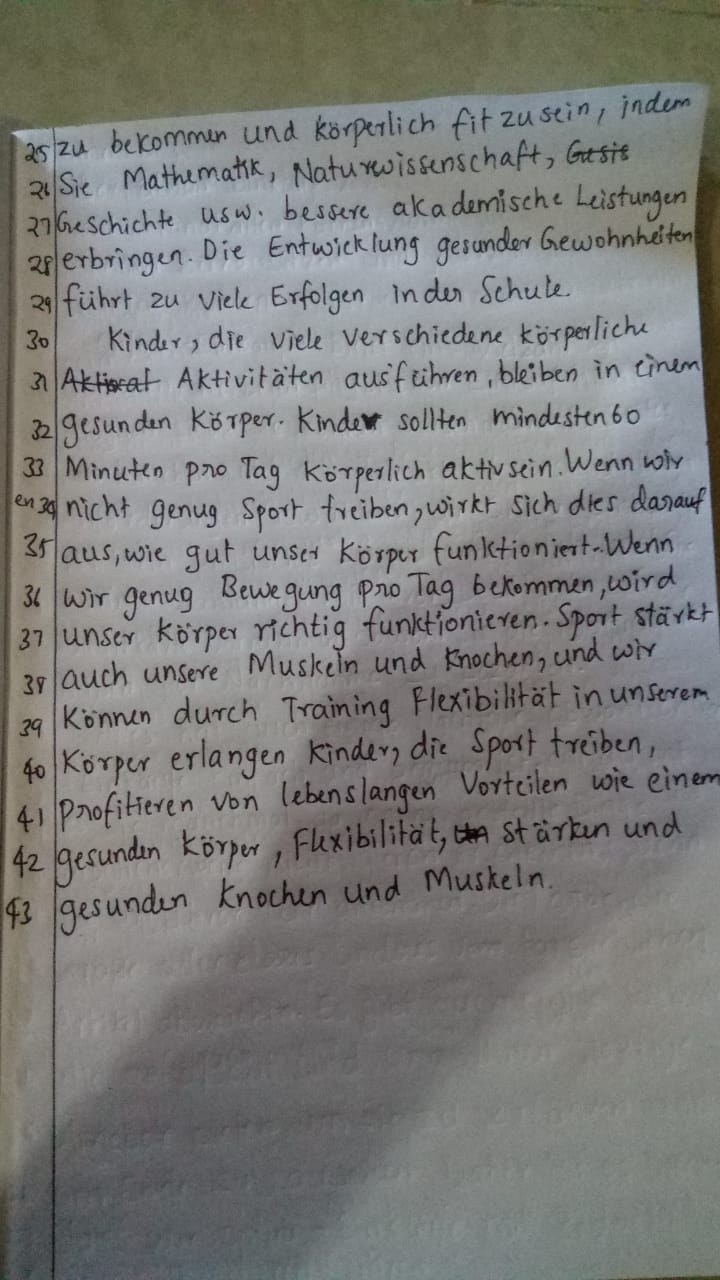 25 zu bekommen und körperlich fit zu sein, indem
26 Sie Mathematik, Naturwissenschaft, Gesis
27 Geschichte usw. bessere akademische Leistungen
28 erbringen. Die Entwicklung gesunder Gewohnheiten
29 führt zu viele Erfolgen in der Schule.
30 Kinder, die viele verschiedene körperliche
31 Aktivitäten ausführen, bleiben in einem
32 gesunden Körper. Kinder sollten mindesten 60
33 Minuten pro Tag körperlich aktiv sein. Wenn wir
en 34 nicht genug Sport treiben, wirkt sich dies darauf
35 aus, wie gut unser Körper funktioniert. Wenn
36 wir genug Bewegung pro Tag bekommen, wird
37 unser Körper richtig funktionieren. Sport stärkt
38 auch unsere Muskeln und Knochen, und wir
39 können durch Training Flexibilität in unserem
40 Körper erlangen Kinder, die Sport treiben,
41 Profitieren von lebenslangen Vorteilen wie einem
42 gesunden Körper, Flexibilität, stärken und
43 gesunden Knochen und Muskeln.